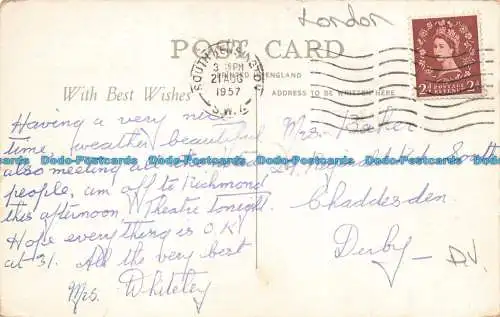 London
POST CARD
SOUTH KENSINGTON
3 15PM
21 AUG
1957
S.W.7
PRINTED ENGLAND
With Best Wishes
ADDRESS TO BE WRITTEN HERE
2D POSTAGE REVENUE 2D
Having a very nice
time, weather beautiful
also meeting
people, am off to Richmond
this afternoon, Theatre tonight.
Hope everything is O.K.
at 31. All the very best
Mrs. Whiteley
Mrs. Baker
South
Chaddesden
Derby
D.V.
Dodo-Postcards Dodo-Postcards Dodo-Postcards Dodo-Postcards Dodo-Postcards